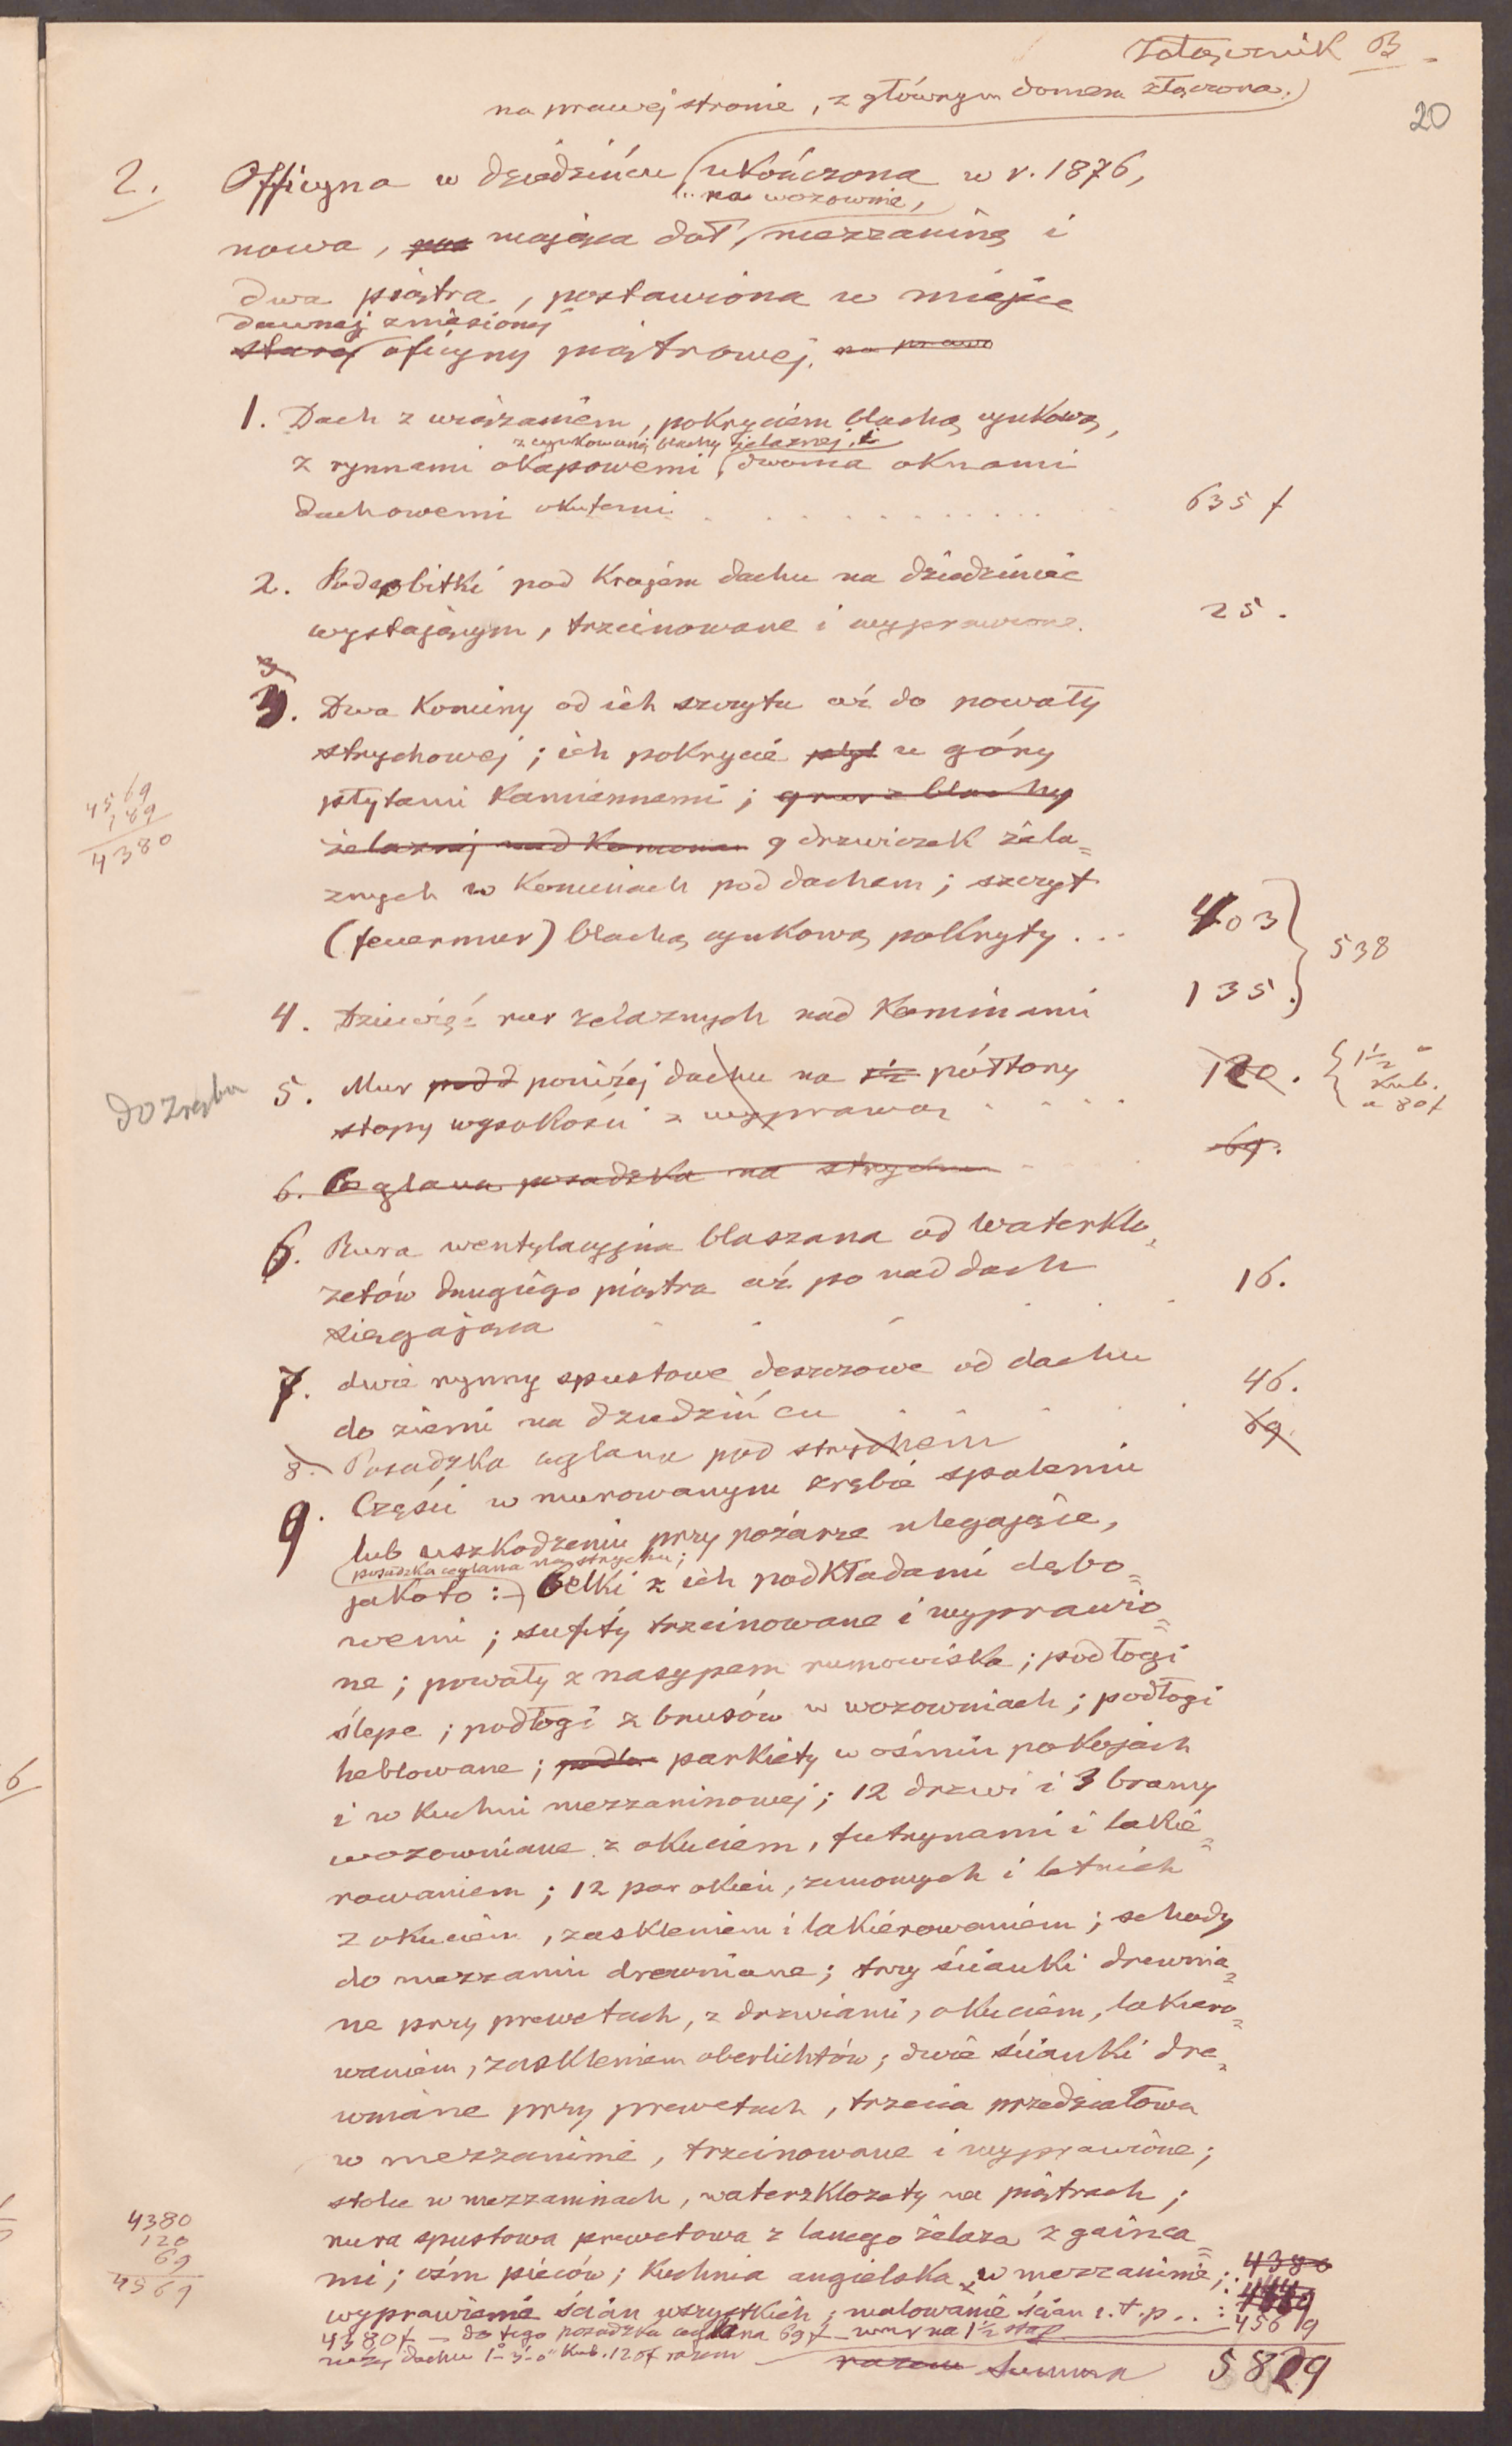 Załącznik B.
20
na prawej stronie, z głównym domem złączona.
2. Officyna w dziedzińcu ukończona w r. 1876,
na wozownie,
nowa, mająca dół, mezzaninę i
dwa piętra, postawiona w miejsce
dawnej zniesionej
starej oficyny piątrowej. na prawo
1. Dach z wiązaniem, pokryciem blachą cynkową,
z cynkowanej blachy żelaznej, i
z rynnami okapowemi, dwoma oknami
dachowemi okutemi . . . . . . . . . . 635 f
2. Podsobitki pod krajem dachu na dziedziniec
wystającym, trzcinowane i wyprawione. 25.
3. Dwa kominy od ich szczytu aż do powały
strychowej; ich pokrycie płyt u góry
płytami kamiennemi; 9 rur z blachy
żelaznej nad kominem 9 drzwiczek żela=
znych w kominach pod dachem; szczyt
(feuermur) blachą cynkową pokryty . . . 403
538
4569
189
4380
4. Dziewięć rur żelaznych nad kominami 135.
do zrębu
5. Mur pod d poniżej dachu na półtory
stopy wysokości z wyprawą . . . . 120. { 1½
kub.
a 80f
6. Ceglana posadzka na strychu 69.
6. Rura wentylacyjna blaszana od waterklo=
zetów drugiego piątra aż po nad dach
sięgająca . . . . . . 16.
7. dwie rynny spustowe deszczowe od dachu
do ziemi na dziedzińcu . . . . . 46.
8. Posadzka ceglana pod strychem 69.
9. Części w murowanym zrębie spaleniu
lub uszkodzeniu przy pożarze ulegające,
posadzka ceglana na strychu;
jakoto: belki z ich podkładami dębo=
wemi; sufity trzcinowane i wyprawio=
ne; powały z nasypem rumowiska; podłogi
ślepe; podłogi z brusów w wozowniach; podłogi
heblowane; podło parkiety w ośmiu pokojach
i w kuchni mezzaninowej; 12 drzwi i 3 bramy
wozowniane z okuciem, futrynami i lakie=
rowaniem; 12 par okien, zimowych i letnich
z okuciem, zaskleniem i lakierowaniem; schody
do mezzanin drewniane; trzy ścianki drewnia=
ne przy prewetach, z drzwiami, okuciem, lakiero=
waniem, zaskleniem oberlichtów; dwie ścianki dre=
wniane przy prewetach, trzecia przedziałowa
w mezzaninie, trzcinowane i wyprawione;
stolce w mezzaninach, waterzklozety na piątrach;
rura spustowa prewetowa z lanego żelaza z gainca=
mi; ośm pieców; kuchnia angielska w mezzaninie; 4380
wyprawienie ścian wszystkich; malowanie ścian i.t.p. . :
4380f — do tego posadzka ceglana 69f — mur na 1½ stop 4569
niżej dachu 1°-3'-0" kub. 120f razem
razem Summa 5829
4380
120
69
4569
6